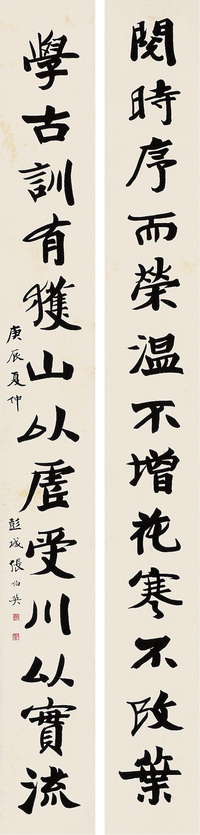 閱時序而榮温不增花寒不改葉
學古訓有獲山以虛受川以實流
庚辰夏仲
彭城張伯英